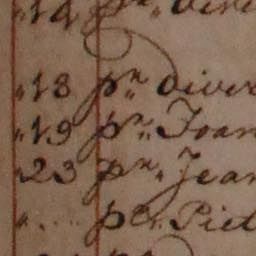 "14 pr. dive
"18 pr. diver
"19 pr. Joan
"23 pr. Jean
". . . . pr. Piet